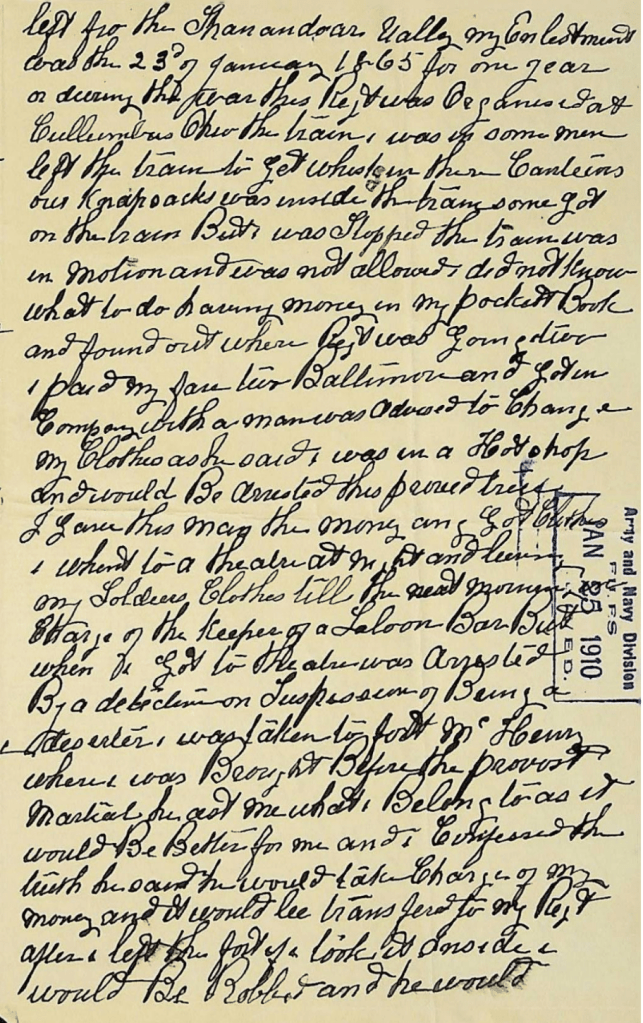 left fro the Shanandoar Vally my Enlestment
was the 23d of January 1865 for one year
or during the war this Rejt was Organised at
Cullumbus Ohio the train i was in some men
left the train to get whisk in there Canteens
our Knapsacks was inside the train some got
on the train But i was Stopped the train was
in motion and was not allowed i did not know
what to do having money in my pockett Book
and found out where Rejt was going two
i paid my fare two Baltimore and Got in
Company with a man was advised to Change
my Clothes as he said i was in a Hot shop
and would Be arrested this proved true
I gave this man the money and Got Clothes
i whent to a theatre at night and leaving
my Soldiers Clothes till the next morning
Charge of the Keeper of a Saloon Bar But
when i Got to theatre was Arrested
By a detective on Suspession of Being a
deserter i was taken to fort Mc Henry
where i was Brought Before the provost
Martial he ast me what i Belong to as it
would Be Better for me and i Confessed the
truth he said he would take Charge of my
money and it would be transferd to my Rejt
after i left the fort if i took it inside i
would Be Robbed and he would
Army and Navy Division
JAN 25 1910